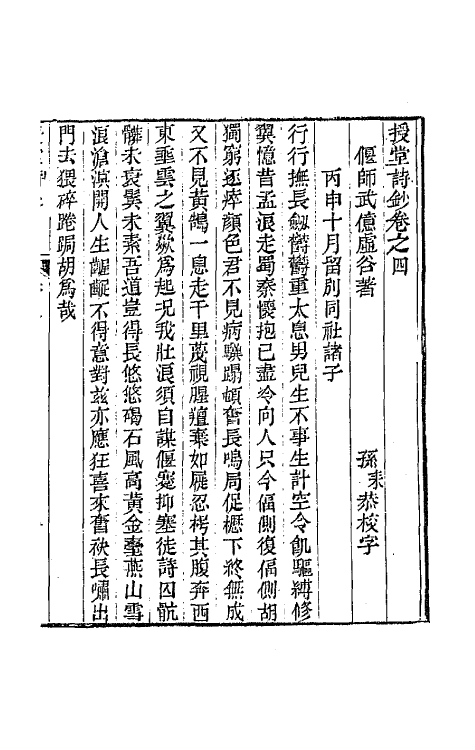 授堂詩鈔卷之四
偃師武億虛谷著　孫耒恭校字
丙申十月留別同社諸子
行行撫長劔欝欝重太息男兒生不事生計空令飢驅縛修
翼憶昔孟浪走蜀秦懷抱已盡冷向人只今偪側復偪側胡
獨窮逐瘁顏色君不見病驥蹋頓奮長鳴局促櫪下終無成
又不見黃鵠一息走千里蔑視腥羶棄如屣忍枵其腹奔西
東垂雲之翼歘為起況我壯浪須自謀偃蹇抑塞徒詩囚骯
髒未衰鬢未素吾道豈得長悠悠碣石風高黃金臺燕山雪
浪滄溟開人生齷齪不得意對茲亦應狂喜來奮袂長嘯出
門去猥碎踡跼胡為哉